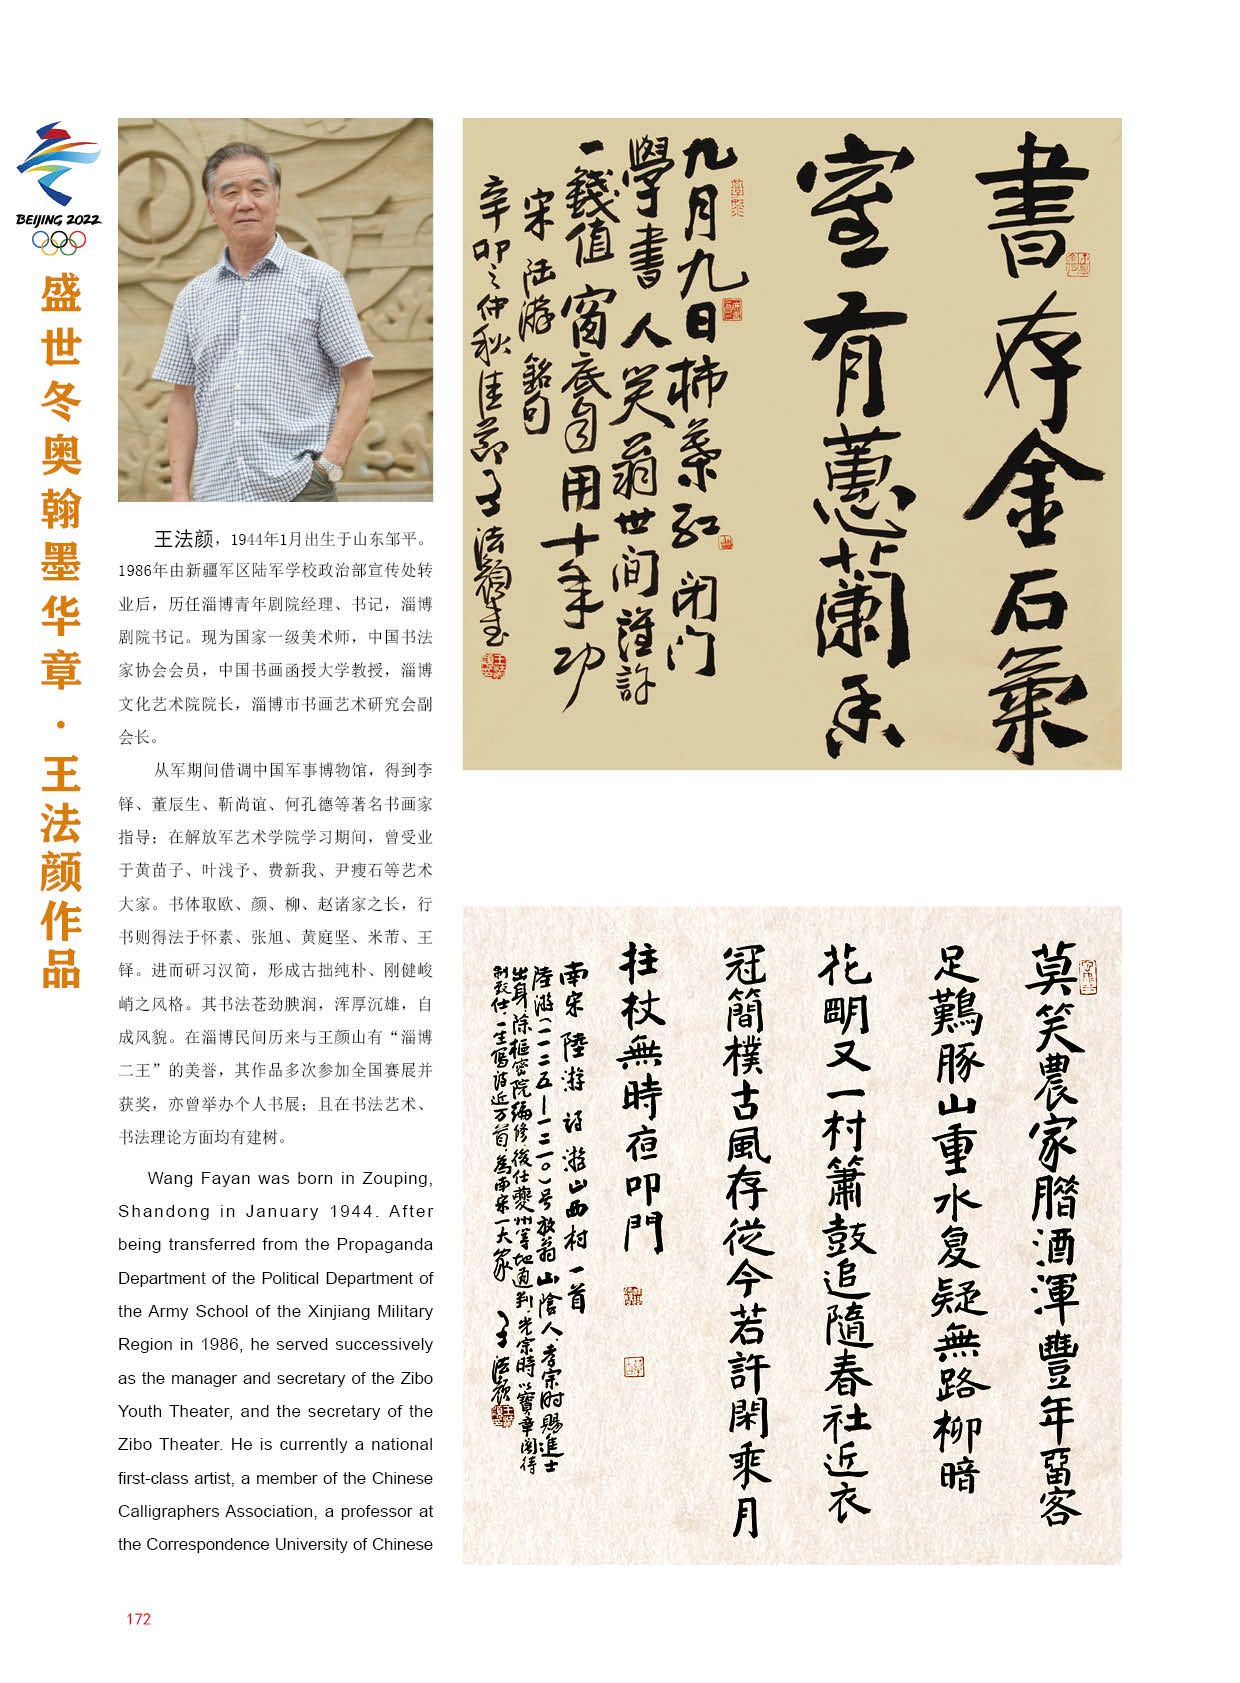 BEIJING 2022
盛世冬奥翰墨华章·王法颜作品
王法颜，1944年1月出生于山东邹平。
1986年由新疆军区陆军学校政治部宣传处转
业后，历任淄博青年剧院经理、书记，淄博
剧院书记。现为国家一级美术师，中国书法
家协会会员，中国书画函授大学教授，淄博
文化艺术院院长，淄博市书画艺术研究会副
会长。
从军期间借调中国军事博物馆，得到李
铎、董辰生、靳尚谊、何孔德等著名书画家
指导；在解放军艺术学院学习期间，曾受业
于黄苗子、叶浅予、费新我、尹瘦石等艺术
大家。书体取欧、颜、柳、赵诸家之长，行
书则得法于怀素、张旭、黄庭坚、米芾、王
铎。进而研习汉简，形成古拙纯朴、刚健峻
峭之风格。其书法苍劲腴润，浑厚沉雄，自
成风貌。在淄博民间历来与王颜山有“淄博
二王”的美誉，其作品多次参加全国赛展并
获奖，亦曾举办个人书展；且在书法艺术、
书法理论方面均有建树。
Wang Fayan was born in Zouping,
Shandong in January 1944. After
being transferred from the Propaganda
Department of the Political Department of
the Army School of the Xinjiang Military
Region in 1986, he served successively
as the manager and secretary of the Zibo
Youth Theater, and the secretary of the
Zibo Theater. He is currently a national
first-class artist, a member of the Chinese
Calligraphers Association, a professor at
the Correspondence University of Chinese
書存金石氣
室有蕙蘭香
九月九日柿葉紅闭门
學書人笑翁世间誰許
一錢值窗底自用十年功
宋陆游銘句
辛卯之仲秋佳节王法顏書
莫笑農家腊酒渾豐年畱客
足鷄豚山重水复疑無路柳暗
花明又一村簫鼓追隨春社近衣
冠簡樸古風存從今若許閑乘月
拄杖無時夜叩門
南宋陸游詩游山西村一首
陸游(一一二五—一二一〇)号放翁山陰人.孝宗时賜進士
出身.除樞密院编修.後任夔州等地通判.光宗時以寶章阁待
制致仕.一生寫詩近万首.為南宋一大家 王法顏
172